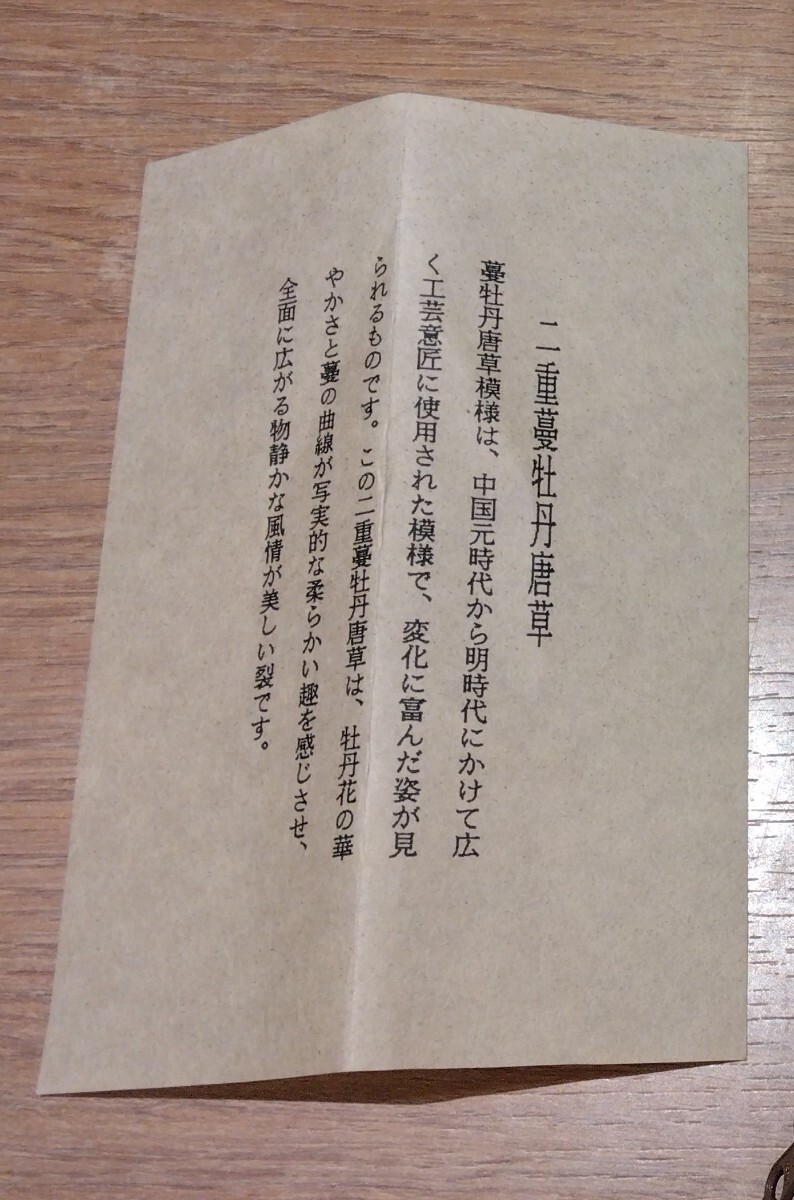 二重蔓牡丹唐草
蔓牡丹唐草模様は、中国元時代から明時代にかけて広
く工芸意匠に使用された模様で、変化に富んだ姿が見
られるものです。この二重蔓牡丹唐草は、牡丹花の華
やかさと蔓の曲線が写実的な柔らかい趣を感じさせ、
全面に広がる物静かな風情が美しい裂です。